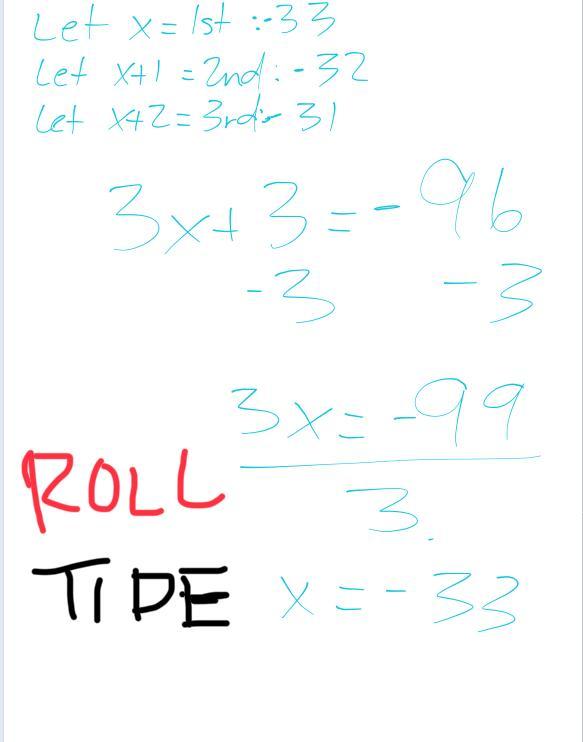 Let x = 1st : -33
Let x+1 = 2nd : -32
Let x+2 = 3rd - 31
3x + 3 = - 96
-3 -3
3x = -99
3.
ROLL
TIDE
x = - 33